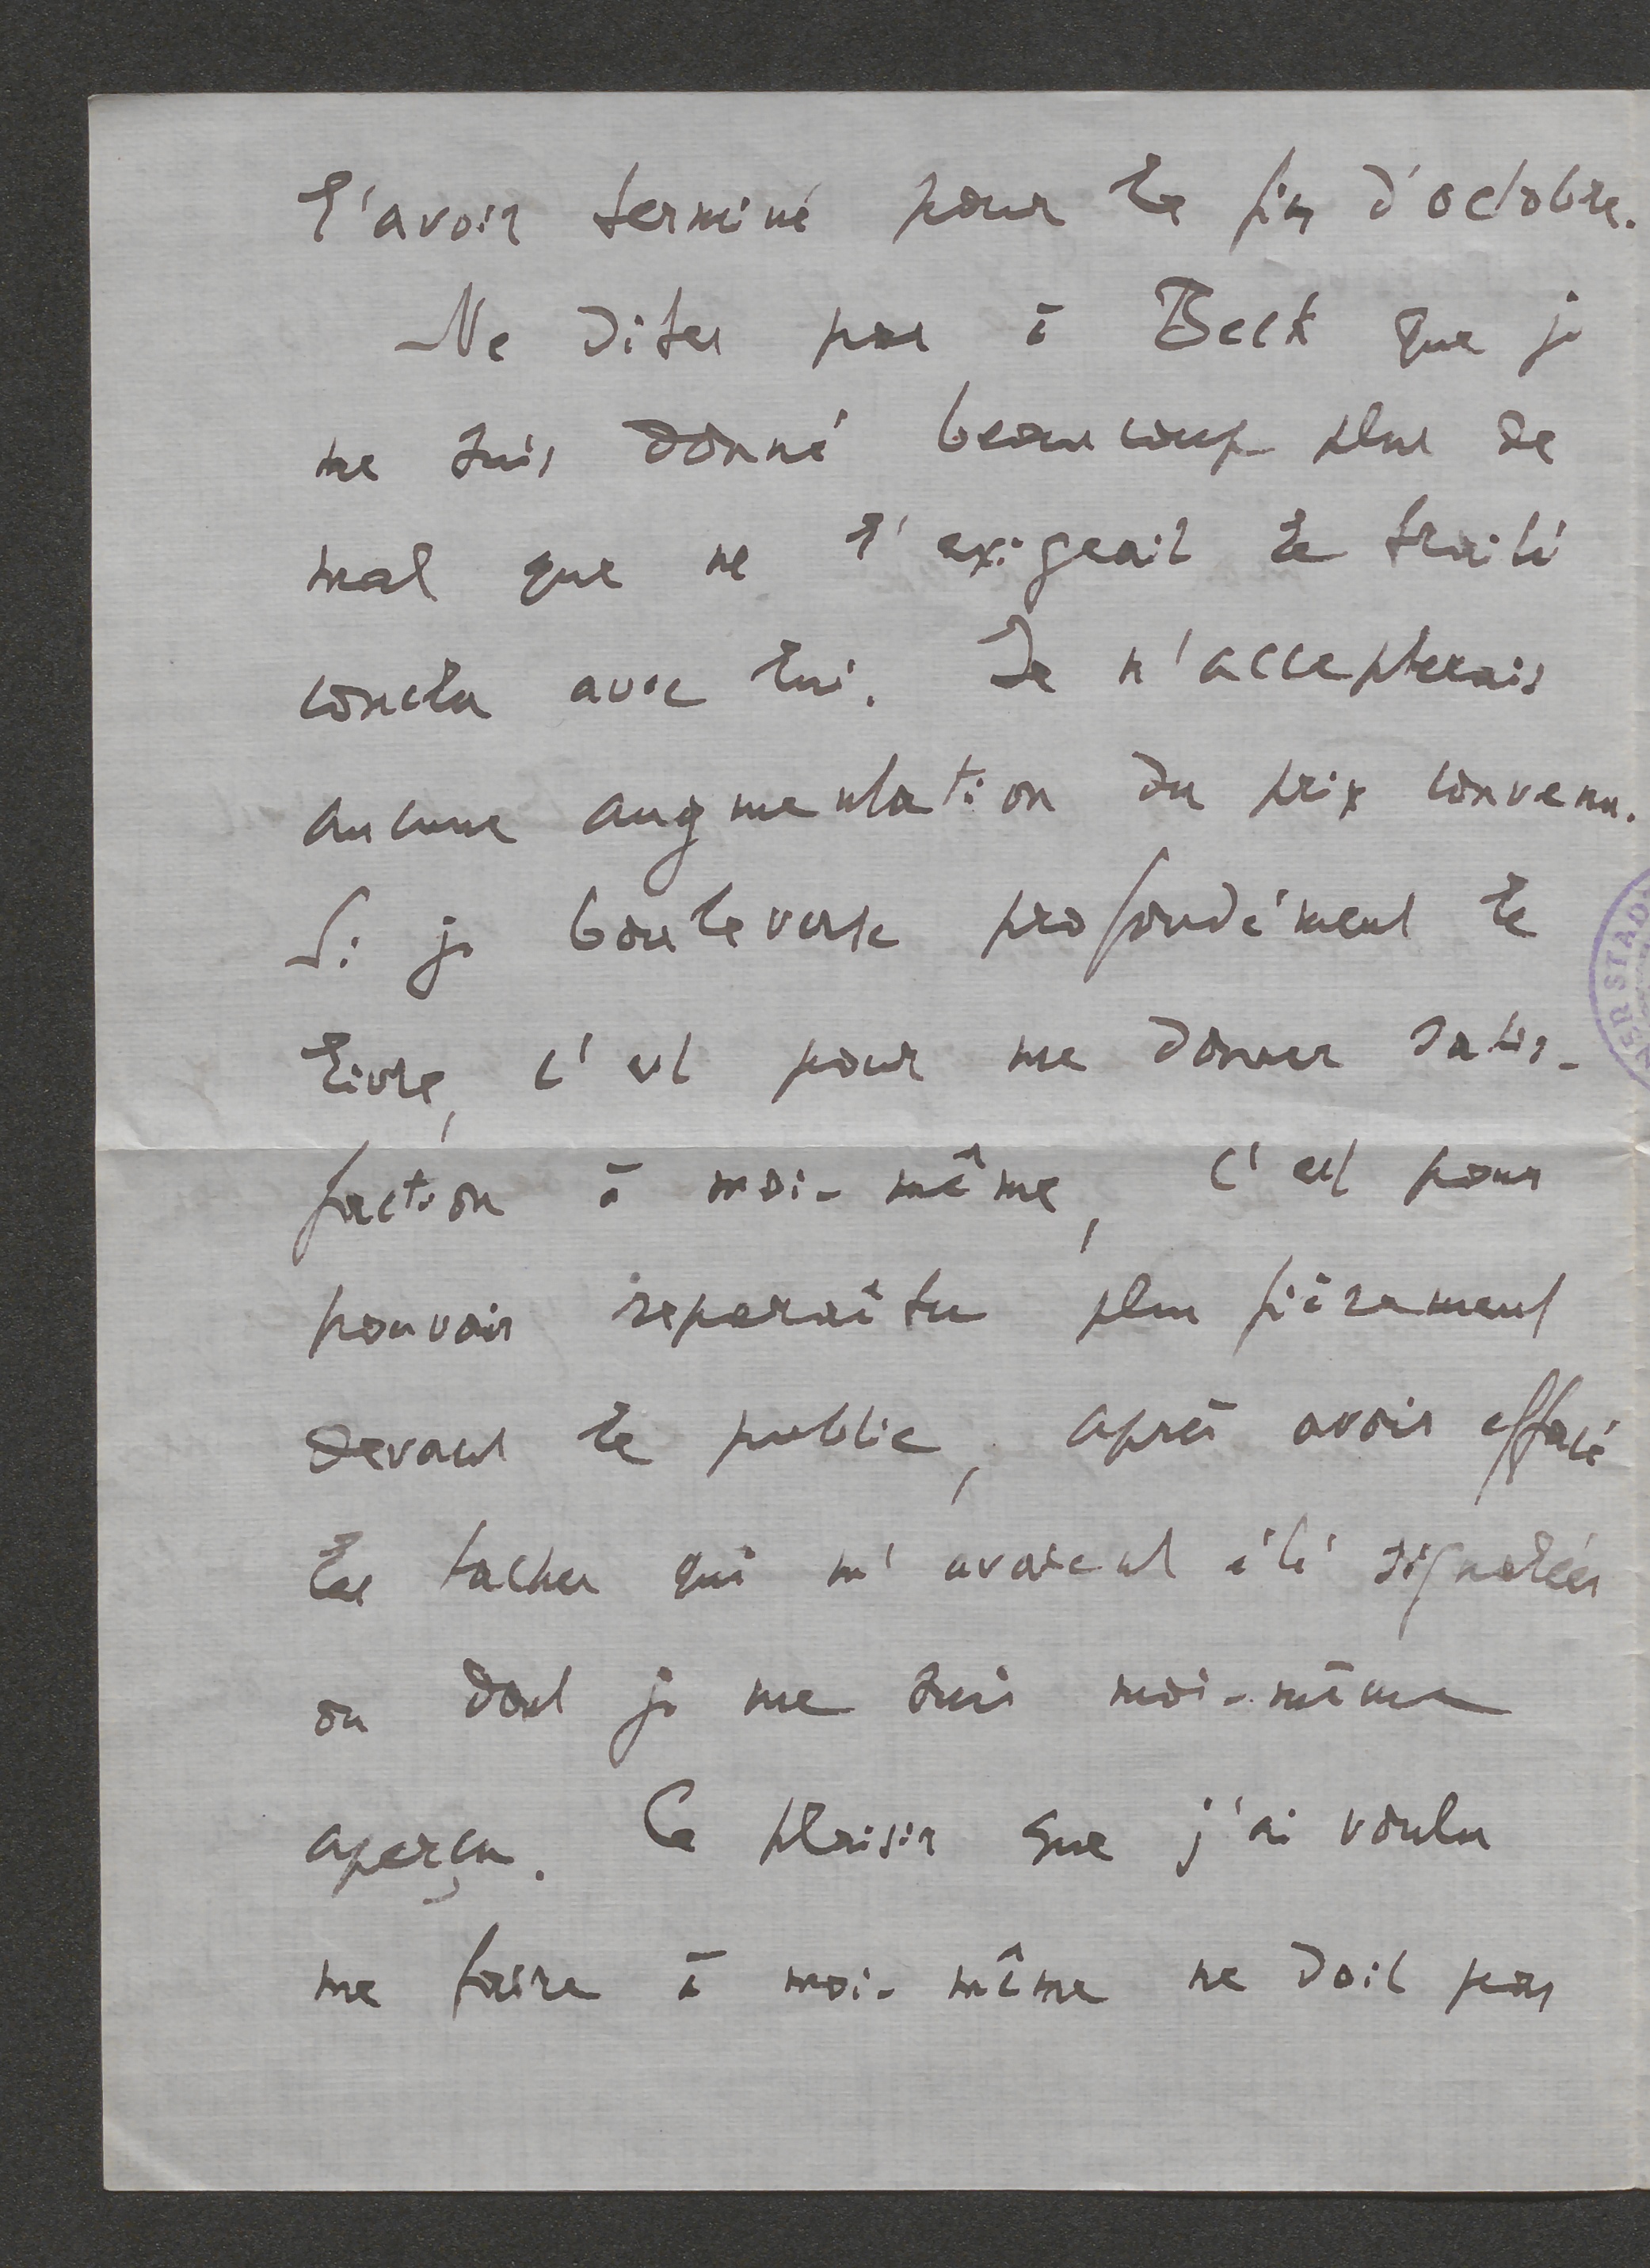 l'avoir terminé pour la fin d'octobre.
Ne dites pas à Beck que je
me suis donné beaucoup plus de
mal que ne l'exigeait le traité
conclu avec lui. Je n'accepterais
aucune augmentation du prix convenu.
Si je bouleverse profondément le
livre, c'est pour me donner satis-
faction à moi-même, c'est pour
pouvoir reparaître plus fièrement
devant le public, après avoir effacé
les taches qui m'avaient été signalées
ou dont je me suis moi-même
aperçu. Ce plaisir que j'ai voulu
me faire à moi-même ne doit pas